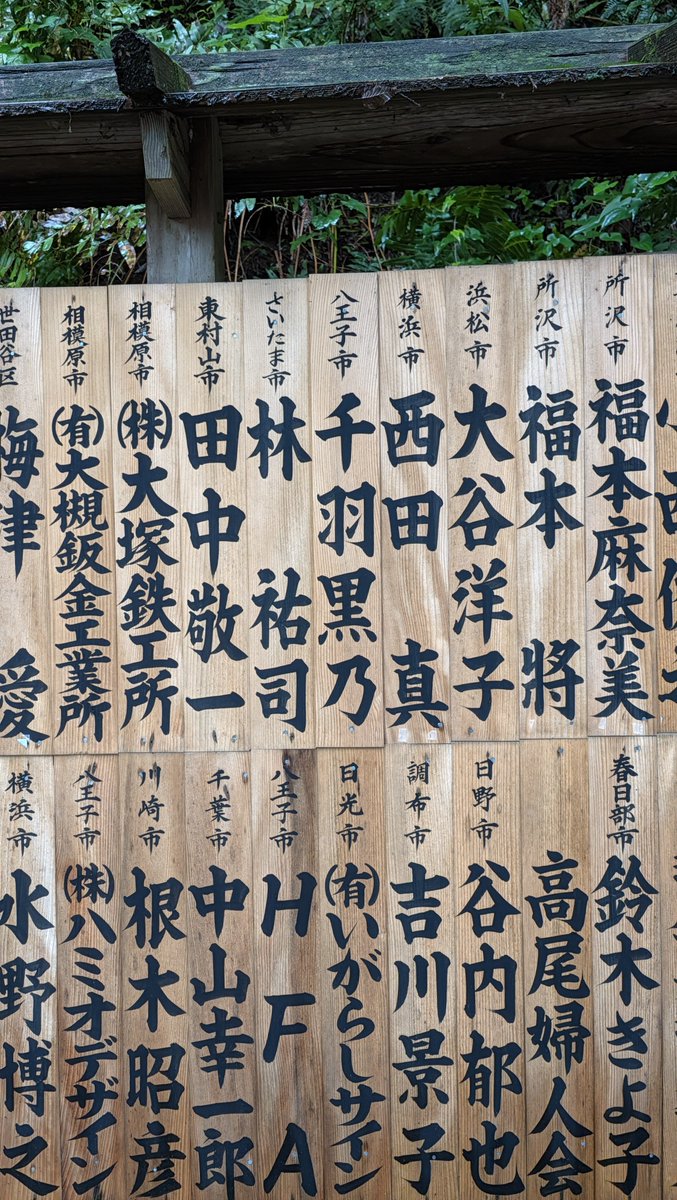 所沢市 福本麻奈美
所沢市 福本 將
浜松市 大谷洋子
横浜市 西田 真
八王子市 千羽黒乃
さいたま市 林 祐司
東村山市 田中敬一
相模原市 (株)大塚鉄工所
相模原市 (有)大槻鈑金工業所
世田谷区 梅津 愛
春日部市 鈴木きよ子
高尾婦人会
日野市 谷内郁也
調布市 吉川景子
日光市 (有)いがらしサイン
八王子市 HFA
千葉市 中山幸一郎
川崎市 根木昭彦
八王子市 (株)ハミオデザイン
横浜市 水野博之